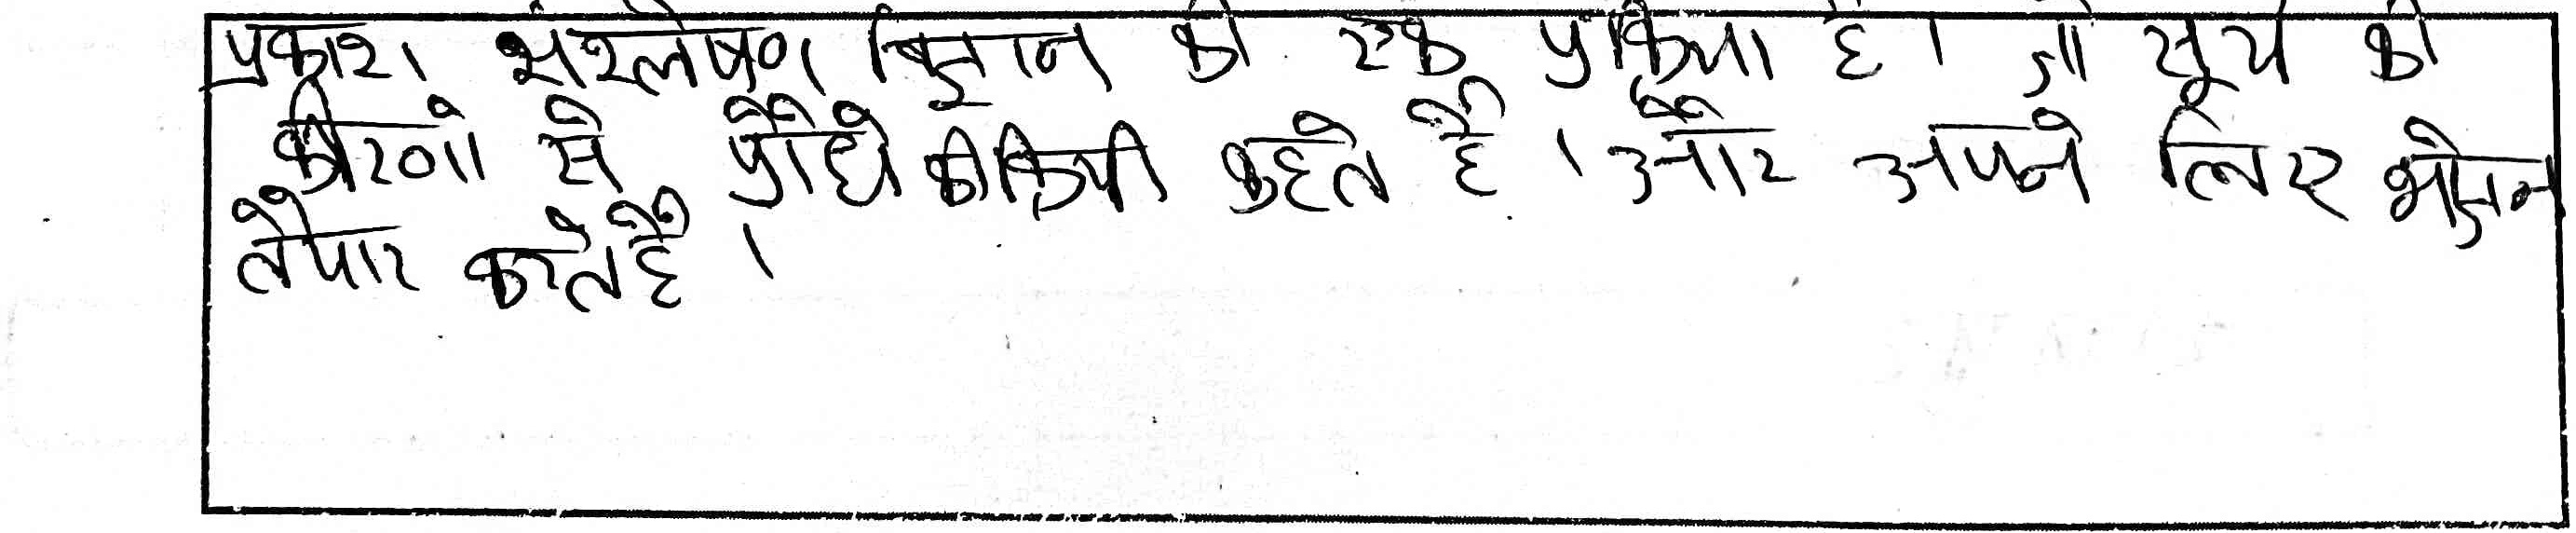 प्रकाश संश्लेषण विज्ञान की एक प्रक्रिया है। जो सूर्य की
कीरणो से पौधे की क्रियी कहते है। और अपने लिए भोजन
तैयार करते है।